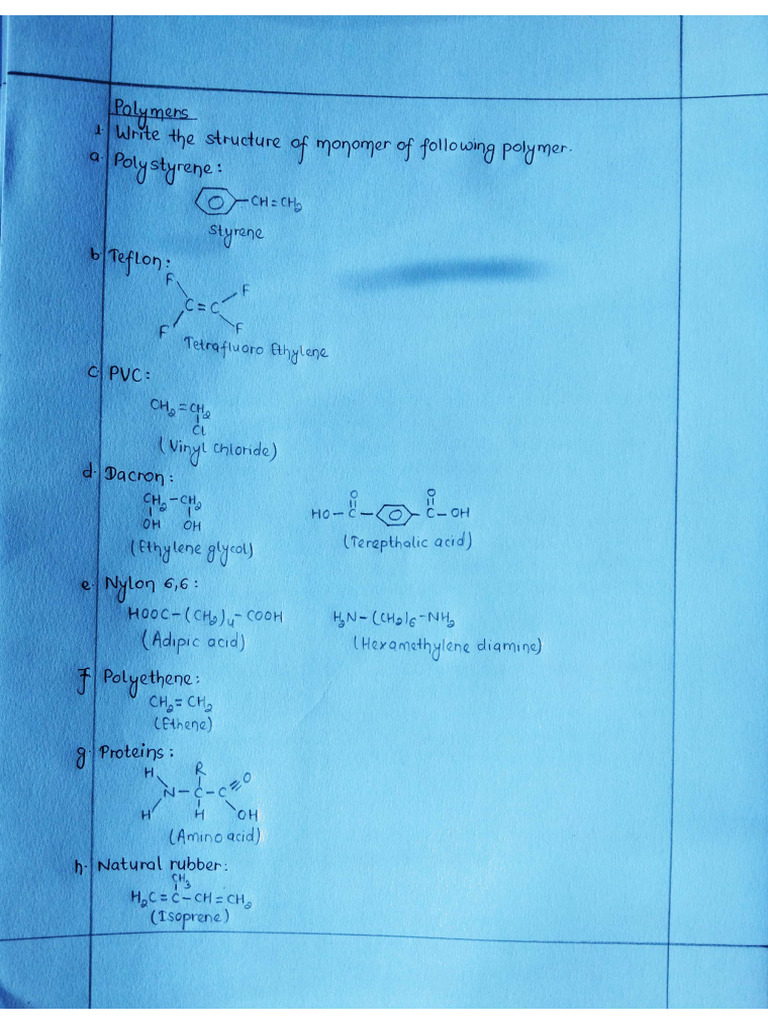 Polymers
1. Write the structure of monomer of following polymer.
a. Polystyrene:
CH=CH₂
Styrene
b. Teflon:
F F
C=C
F F
Tetrafluoro Ethylene
c. PVC:
CH₂=CH₂
Cl
(Vinyl chloride)
d. Dacron:
CH₂-CH₂
OH OH
(Ethylene glycol)
O O
HO-C- -C-OH
(Terepthalic acid)
e. Nylon 6,6:
HOOC-(CH₂)₄-COOH H₂N-(CH₂)₆-NH₂
(Adipic acid) (Hexamethylene diamine)
f. Polyethene:
CH₂=CH₂
(Ethene)
g. Proteins:
H R O
N-C-C
H H OH
(Amino acid)
h. Natural rubber:
CH₃
H₂C=C-CH=CH₂
(Isoprene)